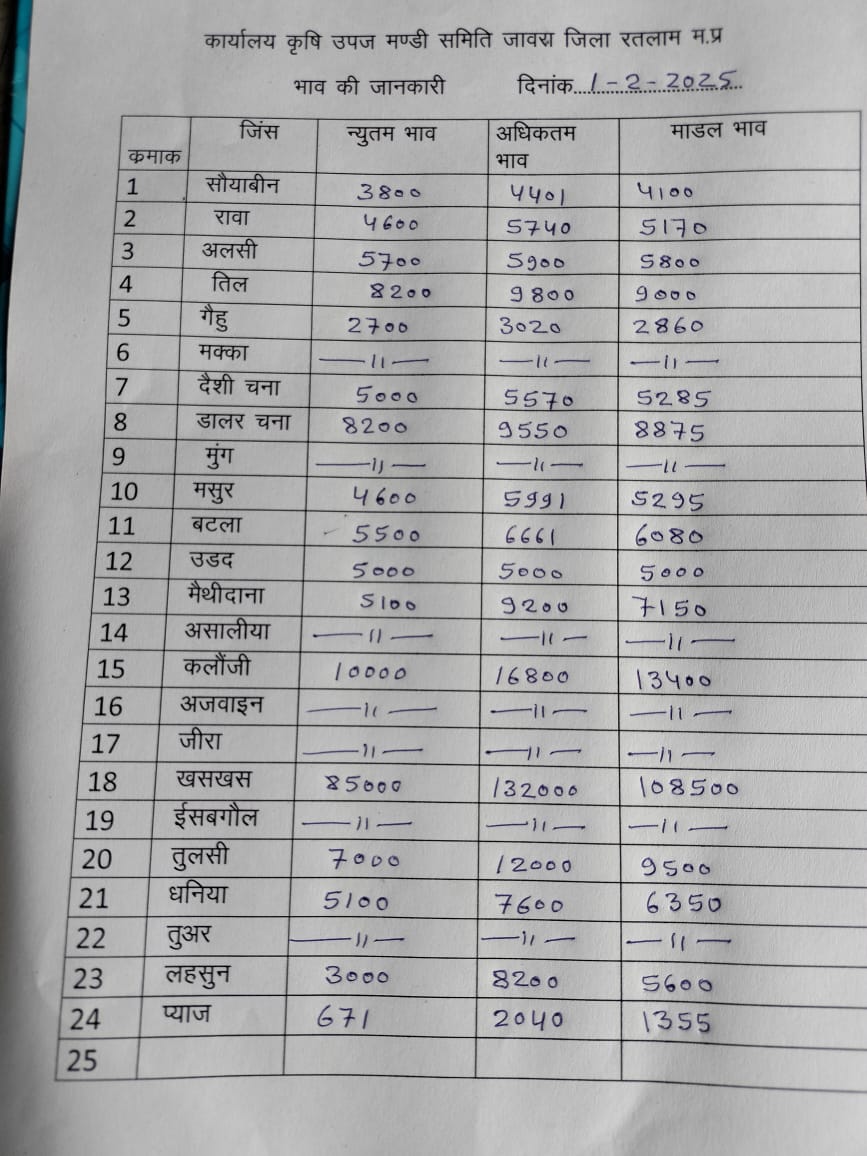 कार्यालय कृषि उपज मण्डी समिति जावरा जिला रतलाम म.प्र
भाव की जानकारी दिनांक 1-2-2025
कमाक जिंस न्युतम भाव अधिकतम भाव माडल भाव
1 सौयाबीन 3800 4401 4100
2 रावा 4600 5740 5170
3 अलसी 5700 5900 5800
4 तिल 8200 9800 9000
5 गैहु 2700 3020 2860
6 मक्का —11— —11— —11—
7 दैशी चना 5000 5570 5285
8 डालर चना 8200 9550 8875
9 मुंग —11— —11— —11—
10 मसुर 4600 5991 5295
11 बटला 5500 6661 6080
12 उडद 5000 5000 5000
13 मैथीदाना 5100 9200 7150
14 असालीया —11— —11— —11—
15 कलौंजी 10000 16800 13400
16 अजवाइन —11— —11— —11—
17 जीरा —11— —11— —11—
18 खसखस 85000 132000 108500
19 ईसबगौल —11— —11— —11—
20 तुलसी 7000 12000 9500
21 धनिया 5100 7600 6350
22 तुअर —11— —11— —11—
23 लहसुन 3000 8200 5600
24 प्याज 671 2040 1355
25